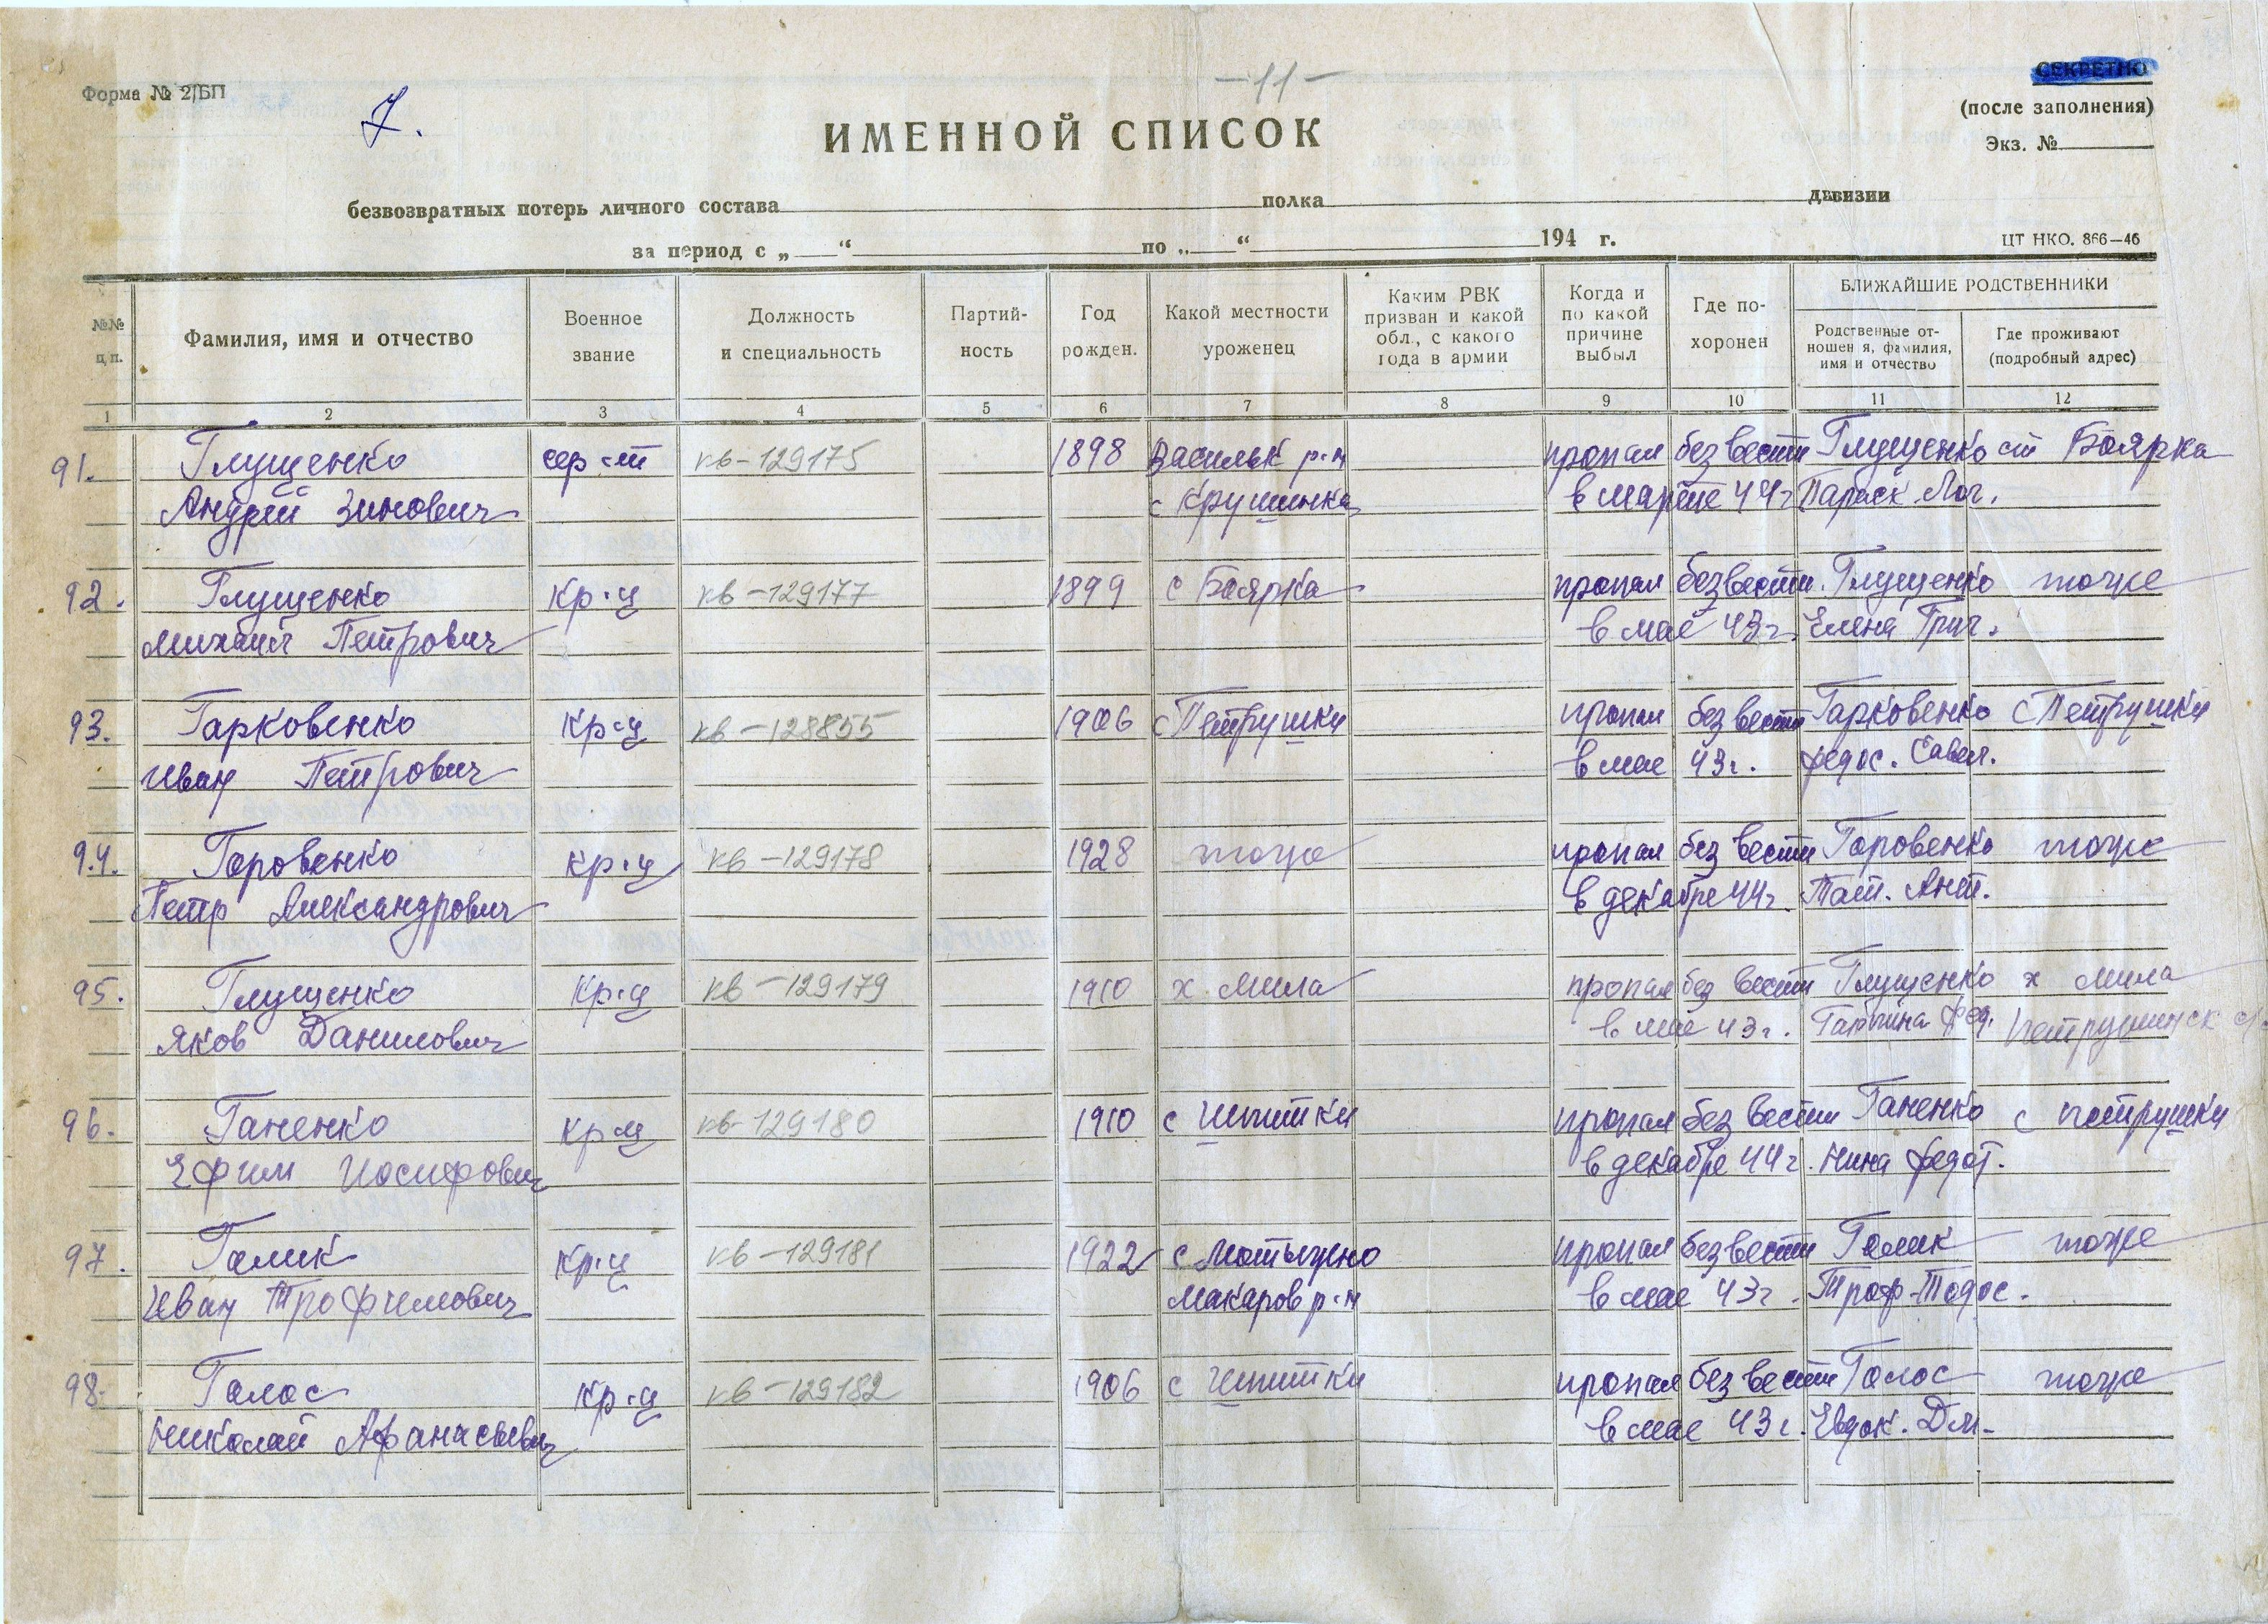 Форма № 2/БП
7.
-11-
СЕКРЕТНО
(после заполнения)
Экз. №
ИМЕННОЙ СПИСОК
безвозвратных потерь личного состава полка дивизии
за период с „ “ по „ “ 194 г.
ЦТ НКО. 866—46
№№ п.п.
Фамилия, имя и отчество
Военное звание
Должность и специальность
Партий-ность
Год рожден.
Какой местности уроженец
Каким РВК призван и какой обл., с какого года в армии
Когда и по какой причине выбыл
Где по-хоронен
БЛИЖАЙШИЕ РОДСТВЕННИКИ
Родственные от-ношен я, фамилия, имя и отчество
Где проживают (подробный адрес)
1 2 3 4 5 6 7 8 9 10 11 12
91. Глущенко сер-т кв-129175 1898 Васильк р-н пропал без вести Глущенко ст Боярка
Андрей Зинович с Крушинка в марте 44г Параск. Лог.
92. Глущенко кр-ц кв-129177 1899 с Боярка пропал без вести Глущенко тоже
Михаил Петрович в мае 43г. Елена Григ.
93. Гарковенко кр-ц кв-128855 1906 с Петрушки пропал без вести Гарковенко с Петрушки
Иван Петрович в мае 43г. Федос. Савел.
94. Горовенко кр-ц кв-129178 1928 тоже пропал без вести Горовенко тоже
Петр Александрович в декабре 44г. Тат. Ант.
95. Глущенко кр-ц кв-129179 1910 х. Мила пропал без вести Глущенко х Мила
Яков Данилович в мае 43г. Фед. Петрушинск с/
96. Ганенко кр-ц кв-129180 1910 с Шпитки пропал без вести Ганенко с Петрушки
Ефим Иосифович в декабре 44г. Нина Федот.
97. Галик кр-ц кв-129181 1922 с Мотыжено пропал без вести Галик тоже
Иван Трофимович Макаров р-н в мае 43г. Троф. Тодос.
98. Голос кр-ц кв-129182 1906 с Шпитки пропал без вести Голос тоже
Николай Афанасьевич в мае 43г. Евдок. Дм.